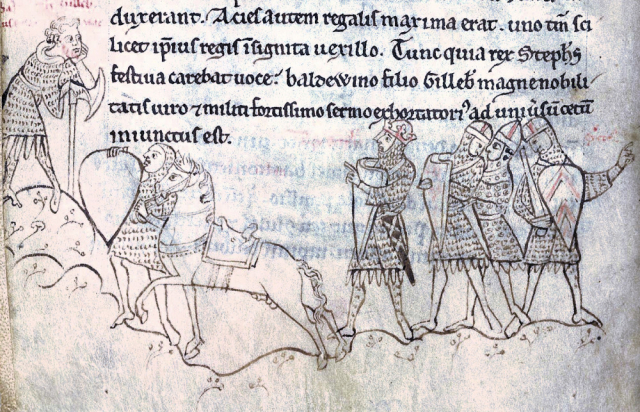 duxerant. Acies autem regalis maxima erat. uno tm̄ sci
licet ip̄ius regis īsignita uexillo. Tunc quia rex Steph̄s
festiua carebat uoce: baldewino filio Gilleb̄ magne nobili
tatis uiro ⁊ militi fortissimo sermo exhortatoriꝰ ad uniūsū cetū
iniunctus est.